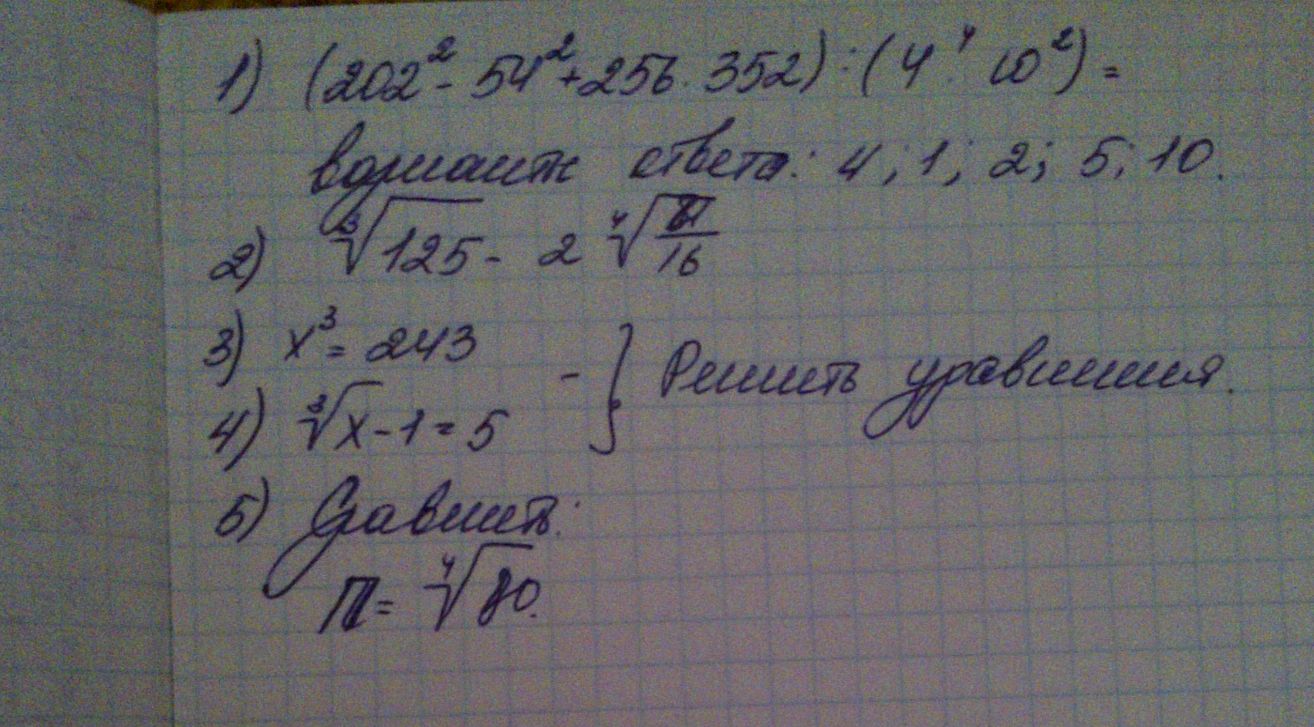 1) (202² - 54² + 256 · 352) : (4⁴ · 10²) =
вариант ответа: 4; 1; 2; 5; 10.
2) ∛125 - 2 ∜(81/16)
3) x³ = 243
4) ∛x - 1 = 5 - } Решить уравнения.
5) Сравнить:
π = ∜80.